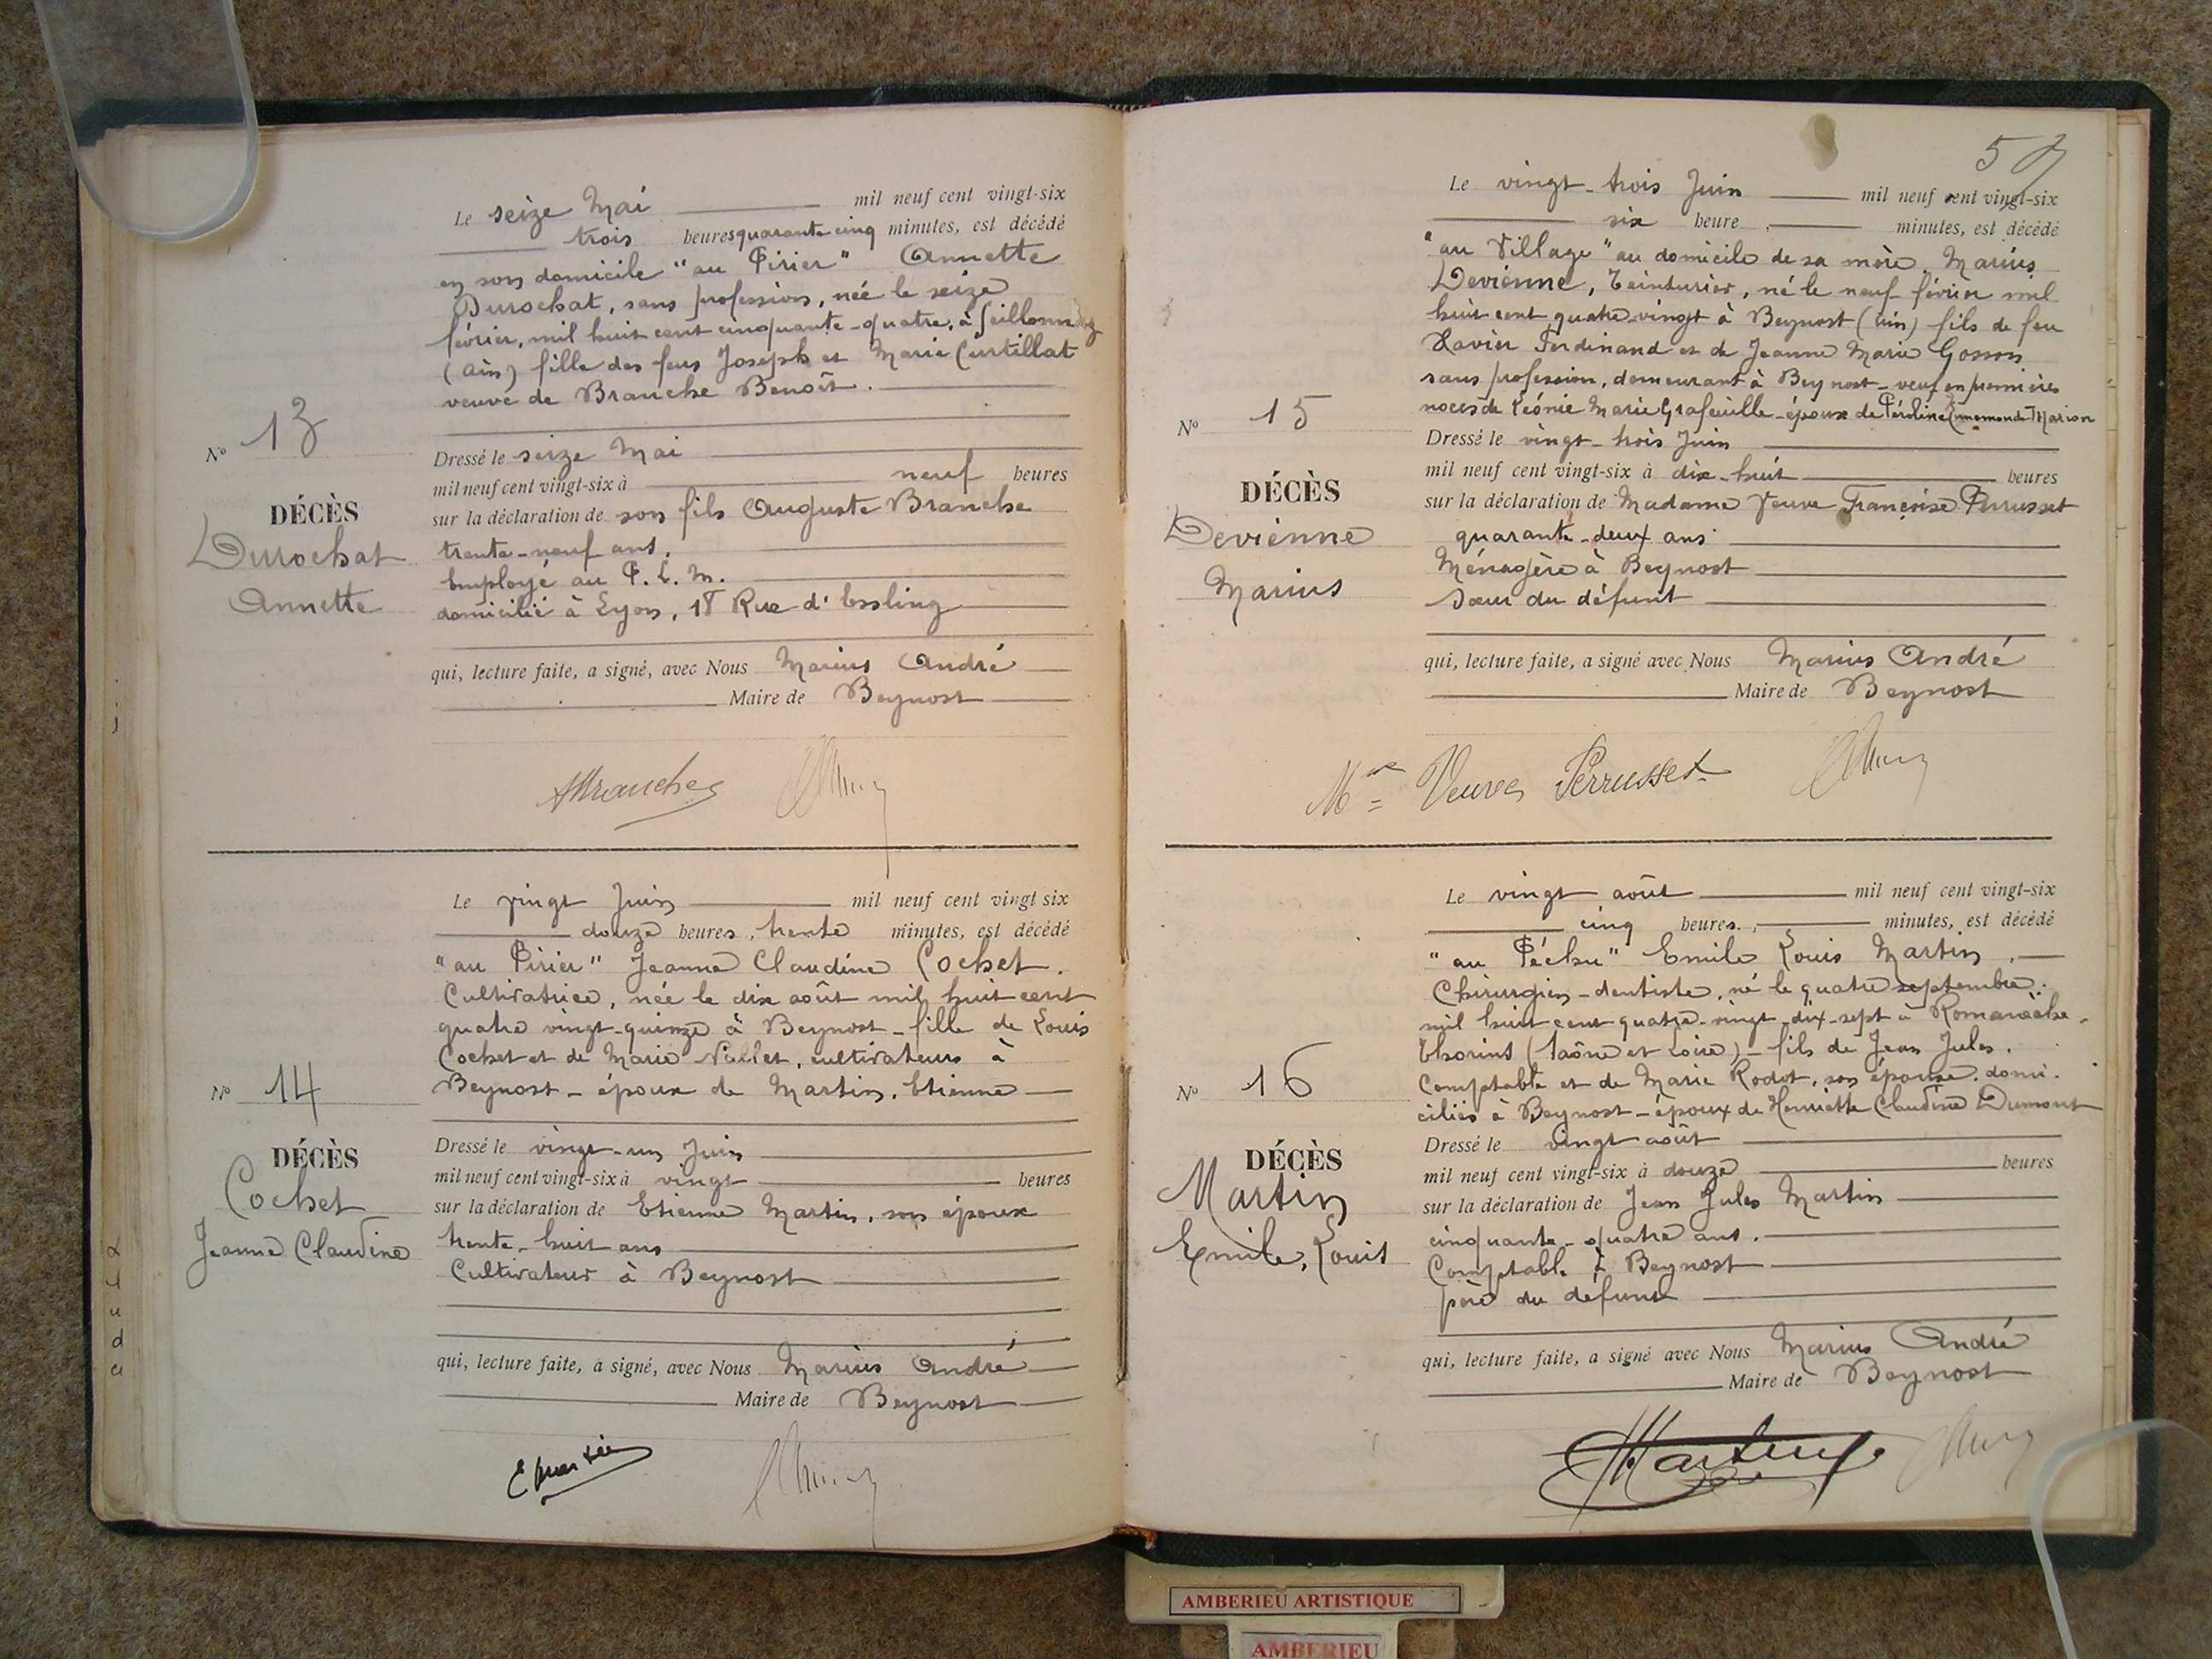 Le seize Mai mil neuf cent vingt-six
trois heures quarante cinq minutes, est décédé
en son domicile "au Pirier" Annette
Durochat, sans profession, née le seize
février, mil huit cent cinquante-quatre, à Seillonnaz
(Ain) fille des feus Joseph et Marie Curtillat
veuve de Branche Benoît.
No 13
DÉCÈS
Durochat
Annette
Dressé le seize Mai
mil neuf cent vingt-six à neuf heures
sur la déclaration de son fils Auguste Branche
trente-neuf ans,
Employé au P.L.M.
domicilié à Lyon, 18 Rue d'Essling
qui, lecture faite, a signé, avec Nous Marius André
Maire de Beynost
ABranche
Le vingt Juin mil neuf cent vingt six
douze heures, trente minutes, est décédé
"au Pirier" Jeanne Claudine Cochet.
Cultivatrice, née le dix août mil huit cent
quatre vingt-quinze à Beynost - fille de Louis
Cochet et de Marie Nallet, cultivateurs à
Beynost - épouse de Martin, Etienne
No 14
DÉCÈS
Cochet
Jeanne Claudine
Dressé le vingt-un Juin
mil neuf cent vingt-six à vingt heures
sur la déclaration de Etienne Martin, son époux
trente-huit ans
Cultivateur à Beynost
qui, lecture faite, a signé, avec Nous Marius André
Maire de Beynost
E Martin
57
Le vingt-trois Juin mil neuf cent vingt-six
six heure, minutes, est décédé
"au Village" au domicile de sa mère, Marius
Devienne, Teinturier, né le neuf février mil
huit cent quatre-vingt à Beynost (Ain) fils de feu
Xavier Ferdinand et de Jeanne Marie Gosson
sans profession, demeurant à Beynost - veuf en premières
noces de Léonie Marie Grafeuille - époux de Péroline Ennemonde Marion
No 15
DÉCÈS
Devienne
Marius
Dressé le vingt-trois Juin
mil neuf cent vingt-six à dix-huit heures
sur la déclaration de Madame Veuve Françoise Perrusset
quarante-deux ans
Ménagère à Beynost
Sœur du défunt
qui, lecture faite, a signé avec Nous Marius André
Maire de Beynost
Mme Veuve Perrusset
Le vingt août mil neuf cent vingt-six
cinq heures, minutes, est décédé
"au Péchu" Emile Louis Martin,
Chirurgien-dentiste, né le quatre septembre
mil huit cent quatre-vingt-dix-sept à Romanèche-
Thorins (Saône et Loire) - fils de Jean Jules,
Comptable et de Marie Rodot, son épouse, domi-
ciliés à Beynost - époux de Henriette Claudine Dumont
No 16
DÉCÈS
Martin
Emile, Louis
Dressé le vingt août
mil neuf cent vingt-six à douze heures
sur la déclaration de Jean Jules Martin
cinquante-quatre ans.
Comptable à Beynost
père du défunt
qui, lecture faite, a signé avec Nous Marius André
Maire de Beynost
Martin
AMBERIEU ARTISTIQUE
AMBERIEU